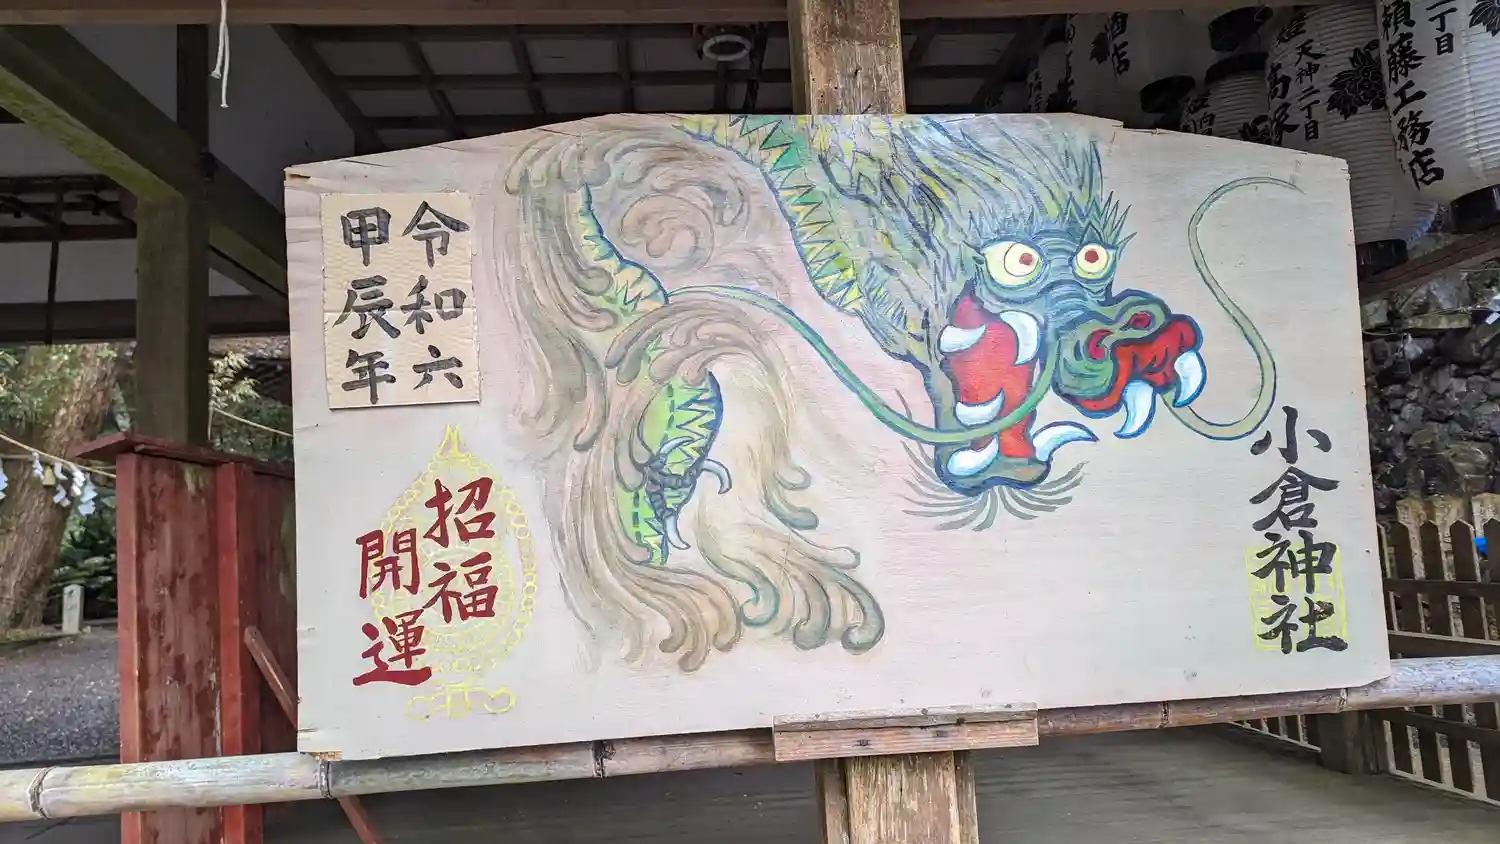 令和六
甲辰年
招福
開運
小倉神社
酒店
天神二丁目
二丁目
頼藤工務店